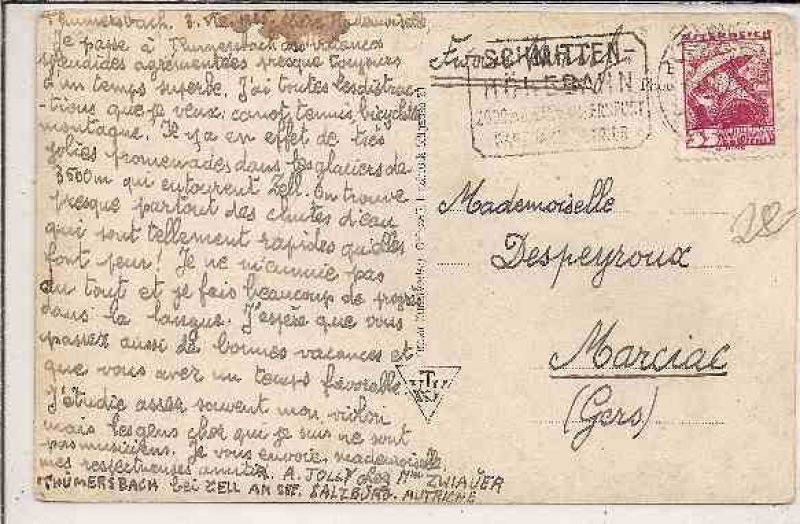 Thumersbach. Mademoiselle,
Je passe à Thumersbach des vacances
splendides agrémentées presque toujours
d'un temps superbe. J'ai toutes les distrac-
tions que je veux: canot, tennis, bicyclette
montagne. Il y a en effet de très
jolies promenades dans les glaciers de
3500m qui entourent Zell. On trouve
presque partout des chutes d'eau
qui sont tellement rapides qu'elles
font peur! Je ne m'ennuie pas
du tout et je fais beaucoup de progrès
dans la langue. J'espère que vous
passez aussi de bonnes vacances et
que vous avez un temps favorable
J'étudie assez souvent mon violon
mais les gens chez qui je suis ne sont
pas musiciens. Je vous envoie, mademoiselle
mes respectueuses amitiés. A. JOLLY chez Mme ZWIAUER
THUMERSBACH bei ZELL AM SEE. SALZBURG. AUTRICHE
SCHMITTEN-
ÖSTERREICH
Mademoiselle
Despeyroux
Marciac
(Gers)